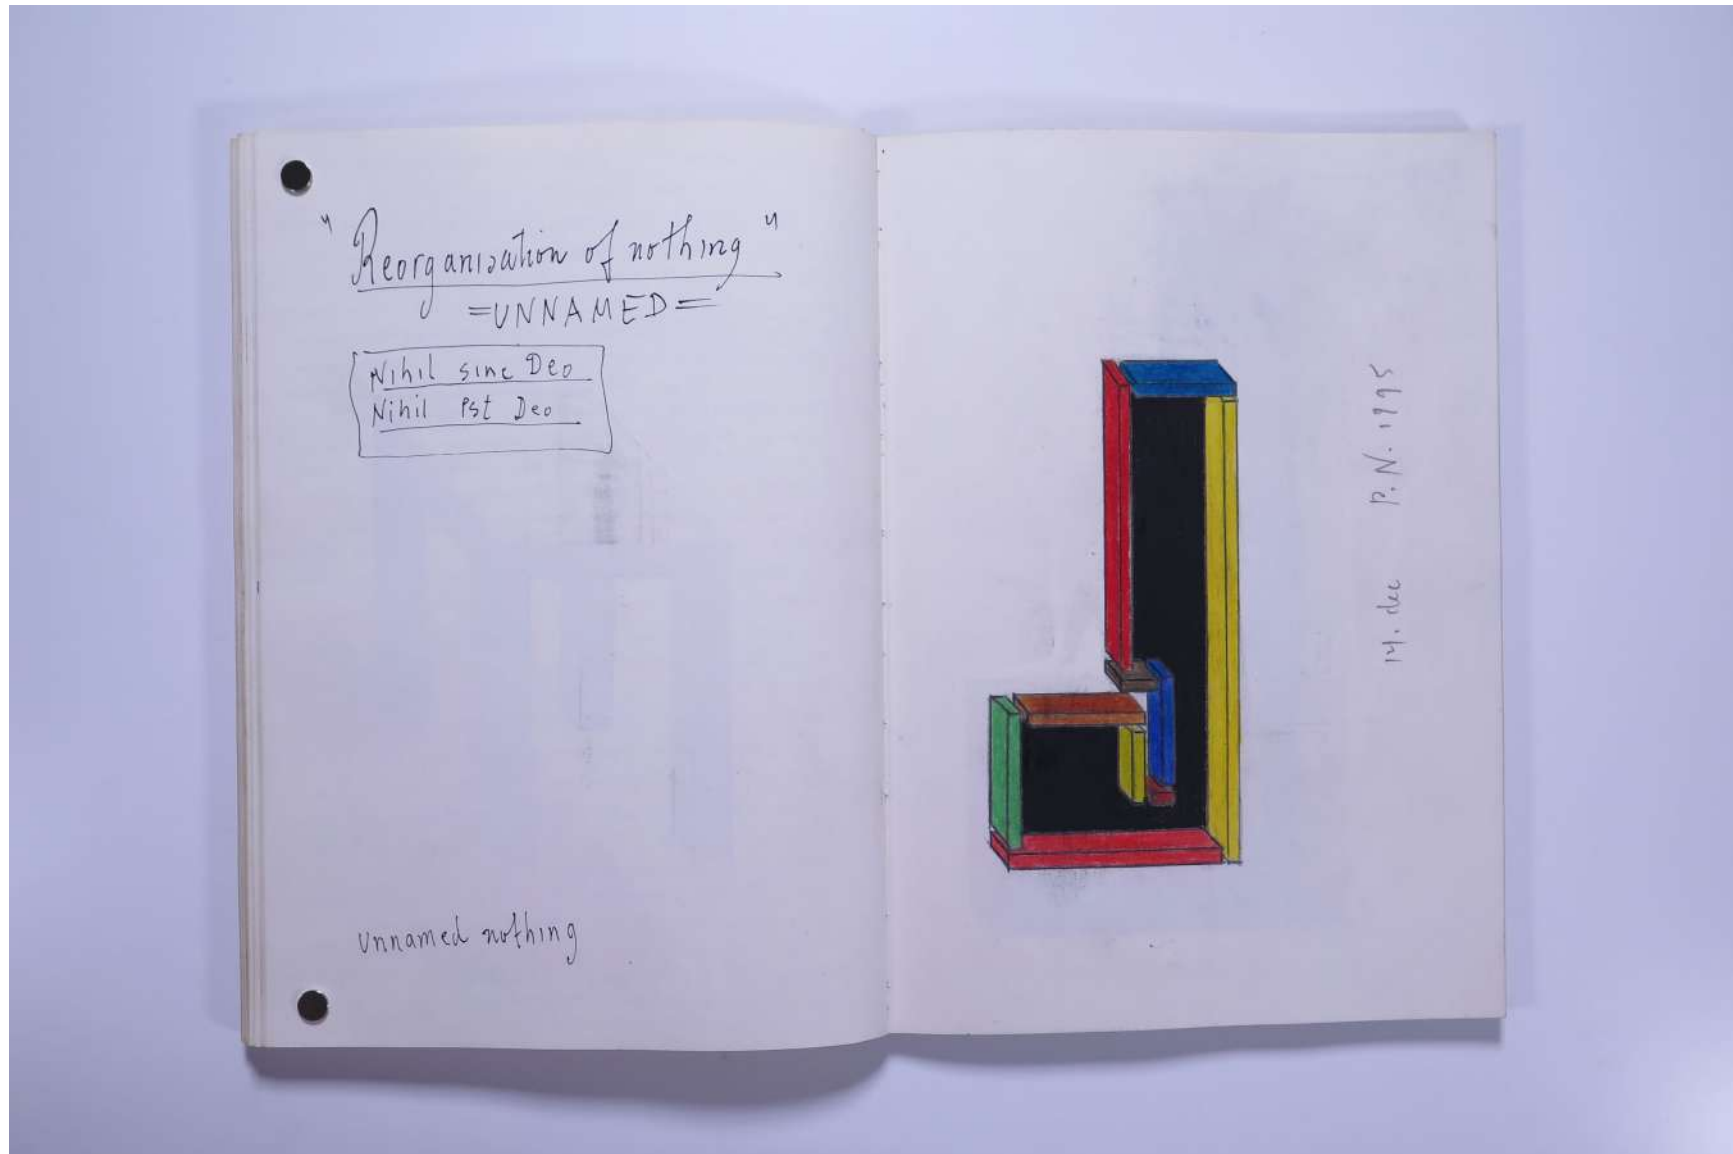 "Reorganisation of nothing"
=UNNAMED=
Nihil sine Deo
Nihil Pst Deo
unnamed nothing
14. dec P.N. 1995